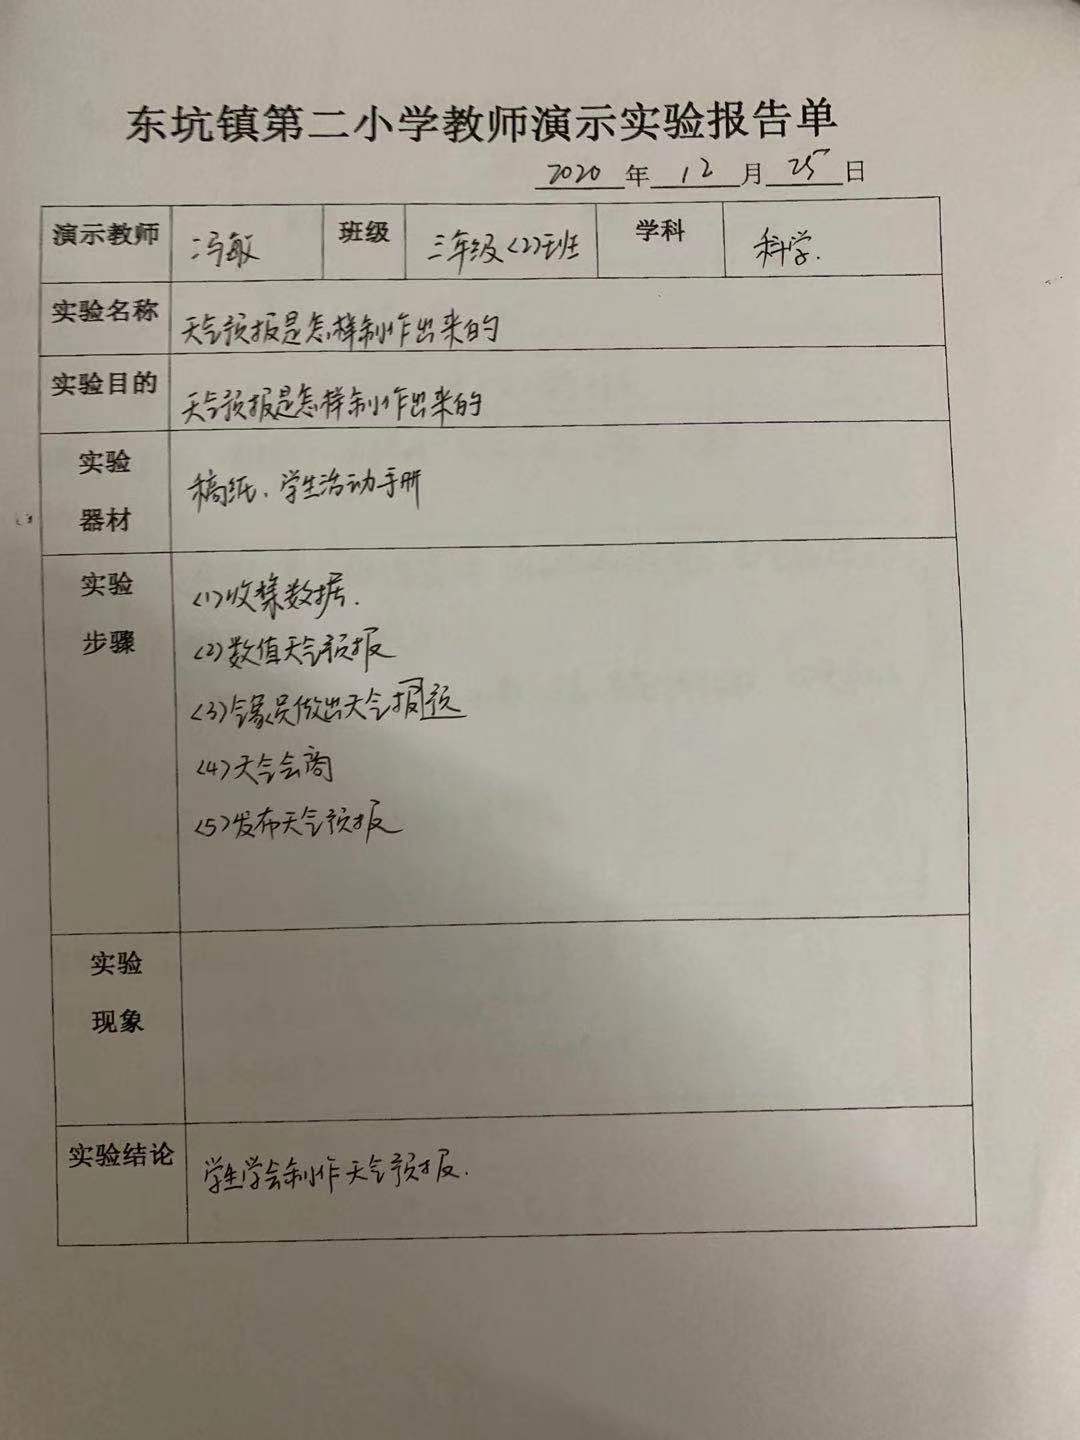 东坑镇第二小学教师演示实验报告单
2020 年 12 月 25 日
演示教师 冯敏 班级 三年级(2)班 学科 科学.
实验名称 天气预报是怎样制作出来的
实验目的 天气预报是怎样制作出来的
实验
器材
稿纸、学生活动手册
实验
步骤
(1)收集数据.
(2)数值天气预报
(3)气象员做出天气报预
(4)天气会商
(5)发布天气预报
实验
现象
实验结论 学生学会制作天气预报.